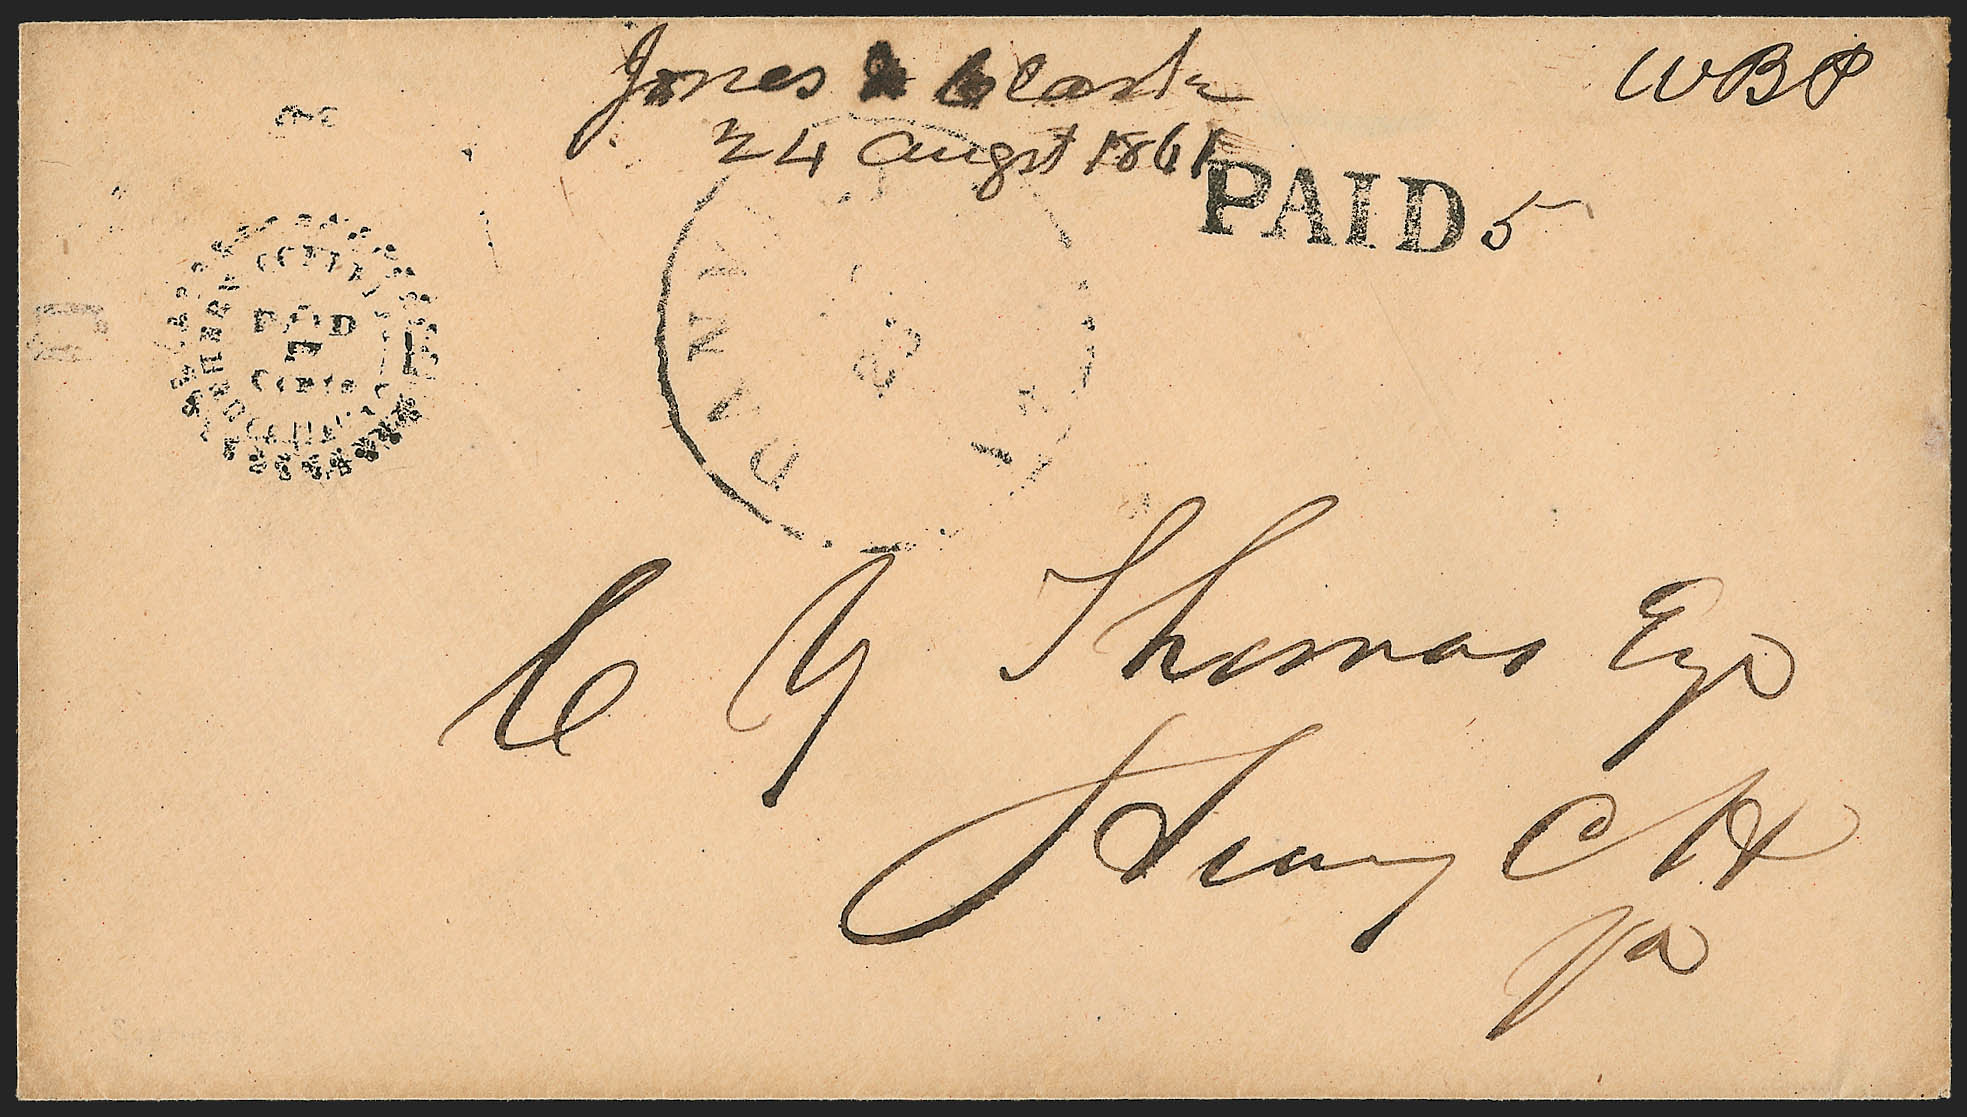 Jones & Clark
24 Augst 1861
WBP
PAID 5
SOUTHERN
PAID
5
CENTS
DANV
C Y Thomas Esqr
Henry C H
Va